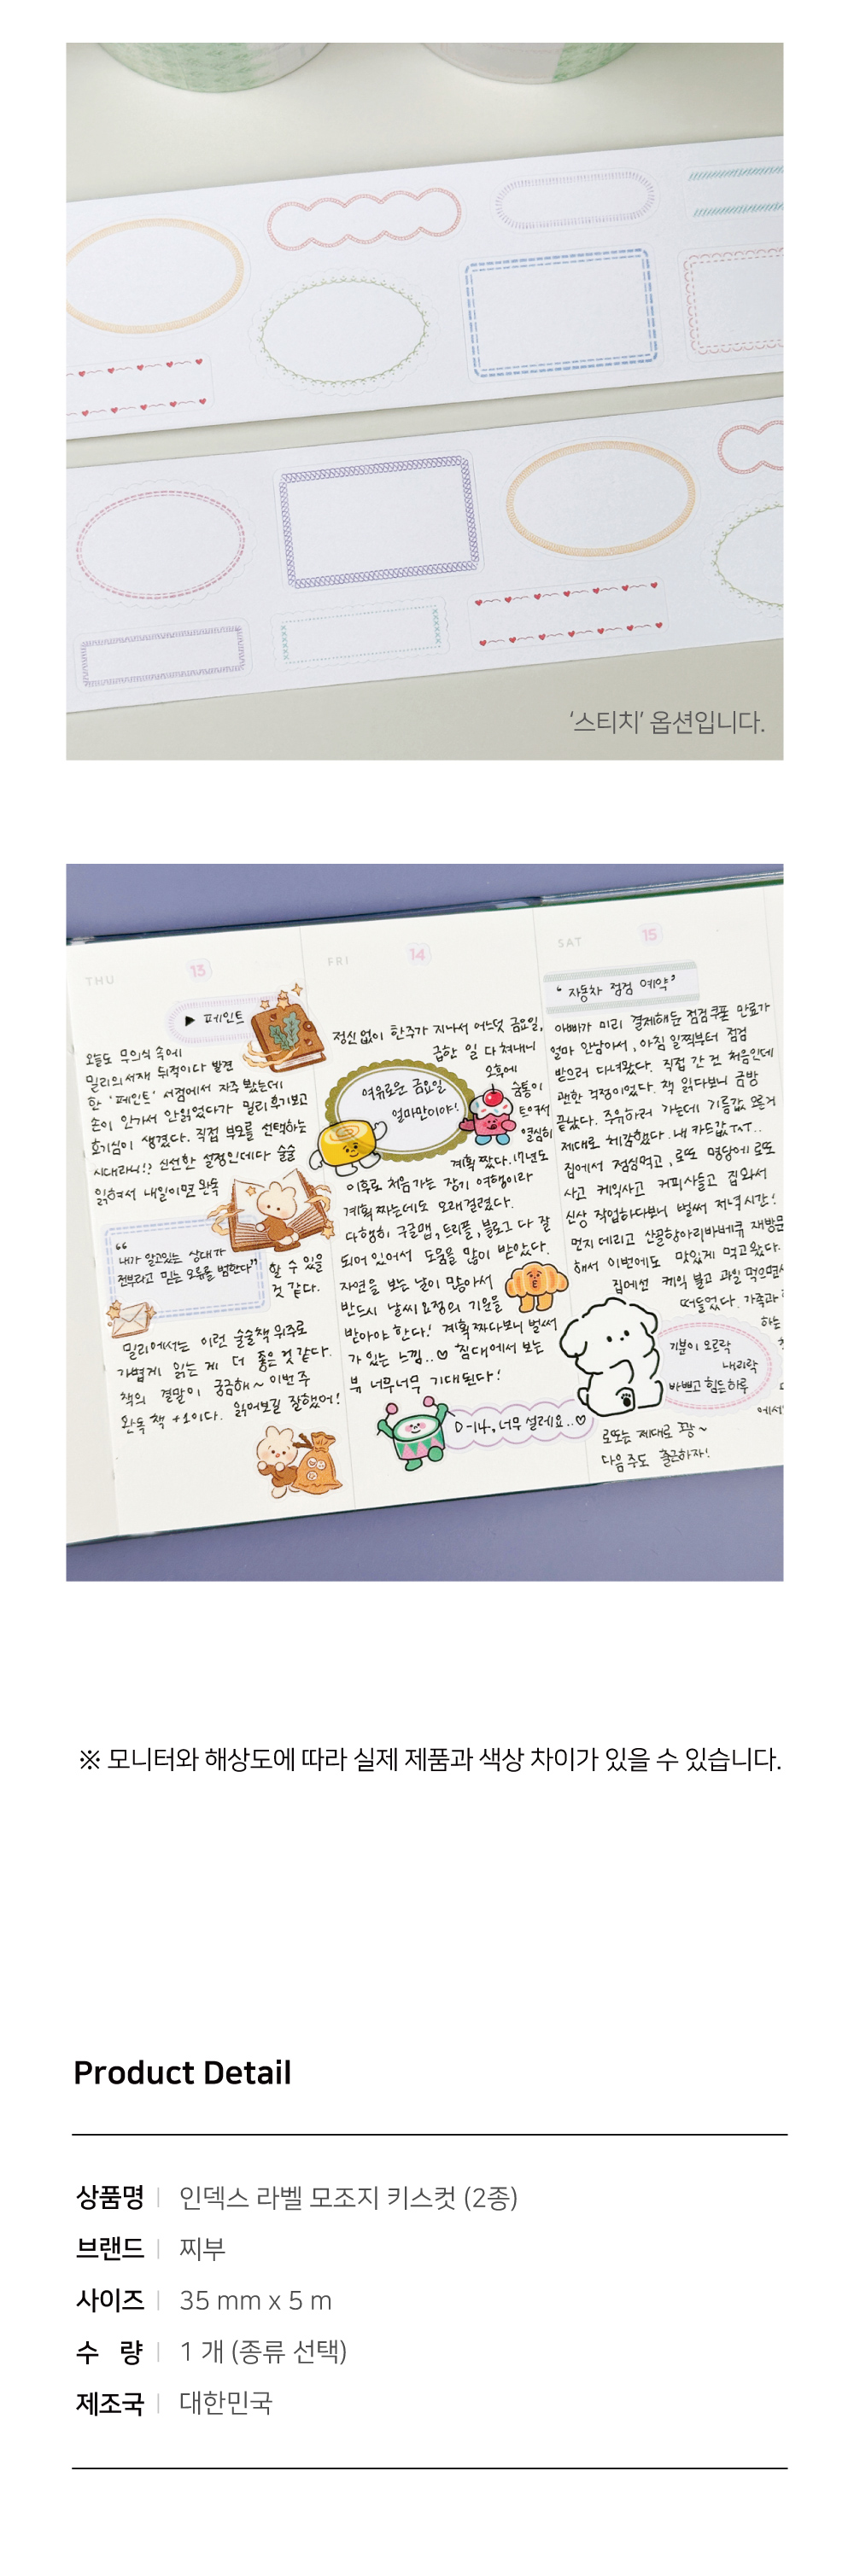 ‘스티치’ 옵션입니다.
THU
13
▶ 페인트
오늘도 무의식 속에
밀리의서재 뒤적이다 발견
한 ‘페인트’ 서점에서 자주 봤는데
손이 안가서 안읽었다가 밀리 후기보고
호기심이 생겼다. 직접 부모를 선택하는
시대라니!? 신선한 설정인데다 술술
읽혀서 내일이면 완독
“
내가 알고있는 상대가
전부라고 믿는 오류를 범한다”
할 수 있을
것 같다.
밀리에서는 이런 술술책 위주로
가볍게 읽는 게 더 좋은 것 같다.
책의 결말이 궁금해~ 이번주
완독 책 +1이다. 읽어보길 잘했어!
FRI
14
정신없이 한주가 지나서 어느덧 금요일,
급한 일 다 쳐내니
오후에
숨통이
트여서
열심히
여유로운 금요일
얼마만이야!
계획 짰다. 17년도
이후로 처음 가는 장기 여행이라
계획 짜는데도 오래걸렸다.
다행히 구글맵, 트리플, 블로그 다 잘
되어 있어서 도움을 많이 받았다.
자연을 보는 날이 많아서
반드시 날씨요정의 기운을
받아야 한다! 계획 짜다보니 벌써
가 있는 느낌..♡ 침대에서 보는
뷰 너무너무 기대된다!
D-14, 너무 설레요..♡
SAT
15
“ 자동차 점검 예약”
아빠가 미리 결제해둔 점검쿠폰 만료가
얼마 안남아서, 아침 일찍부터 점검
받으러 다녀왔다. 직접 간 건 처음인데
괜한 걱정이었다. 책 읽다보니 금방
끝났다. 주유하러 가는데 기름값 오른거
제대로 체감했다. 내 카드값 TㅅT..
집에서 점심먹고, 로또 명당에 로또
사고 케익사고 커피사들고 집와서
신상 작업하다보니 벌써 저녁시간!
먼지 데리고 산골항아리바베큐 재방문
해서 이번에도 맛있게 먹고왔다.
집에선 케익 불고 과일 먹으면서
떠들었다. 가족과
하는
기분이 오르락
내리락
바쁘고 힘든 하루
에서
로또는 제대로 꽝~
다음주도 출근하자!
※ 모니터와 해상도에 따라 실제 제품과 색상 차이가 있을 수 있습니다.
Product Detail
상품명 | 인덱스 라벨 모조지 키스컷 (2종)
브랜드 | 찌부
사이즈 | 35 mm x 5 m
수 량 | 1 개 (종류 선택)
제조국 | 대한민국